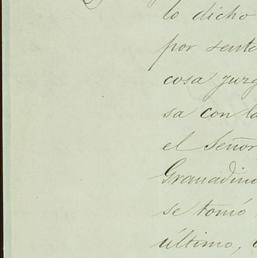 lo dicho
por senta
cosa juzg
sa con la
el Señor
Granadino
se tomó
último,